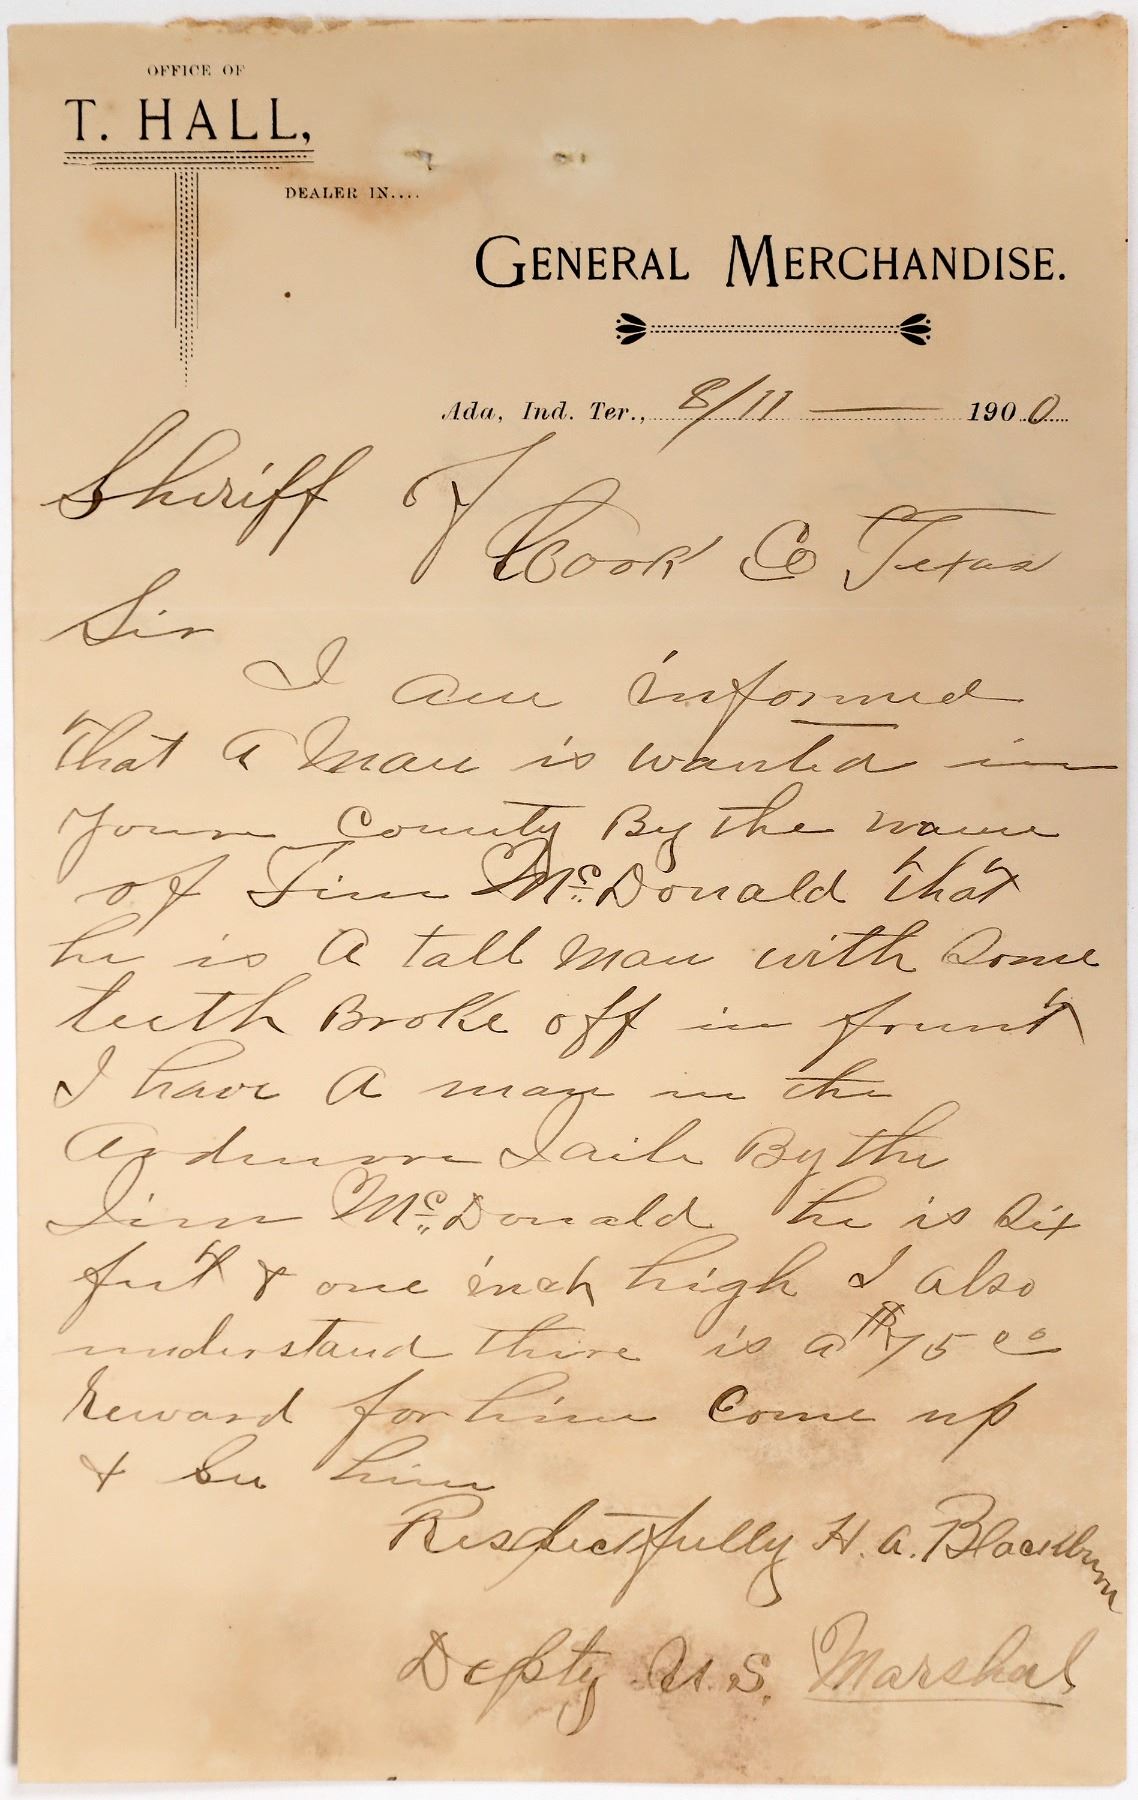 OFFICE OF
T. HALL,
DEALER IN....
GENERAL MERCHANDISE.
Ada, Ind. Ter., 8/11 — 1900
Sheriff of
Cook Co Texas
Sir
I am informed
that a Man is wanted in
youre County By the name
of Jim McDonald that
he is a tall man with some
teeth Broke off in frunt
I have a man in the
Ardmore Jaile By the
Jim McDonald he is six
feet & one inch high I also
understand there is a $75 00
Reward for him Come up
& See him
Respectfully H. A. Blackburn
Depty U. S. Marshal